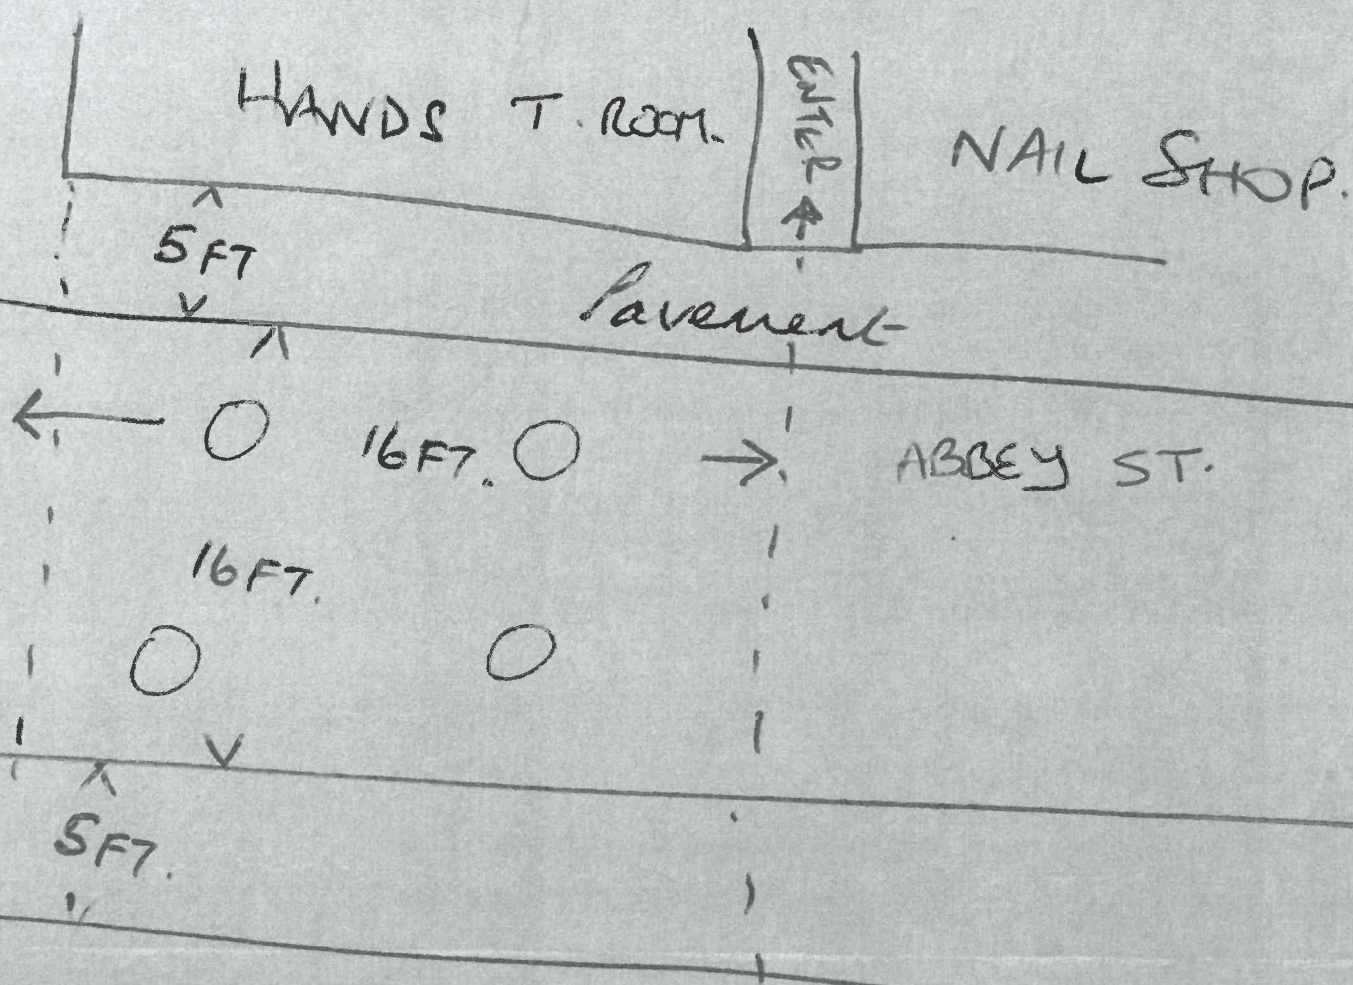 HANDS T. ROOM.
ENTER
NAIL SHOP.
5FT
Pavement
16FT.
ABBEY ST.
16FT.
5FT.